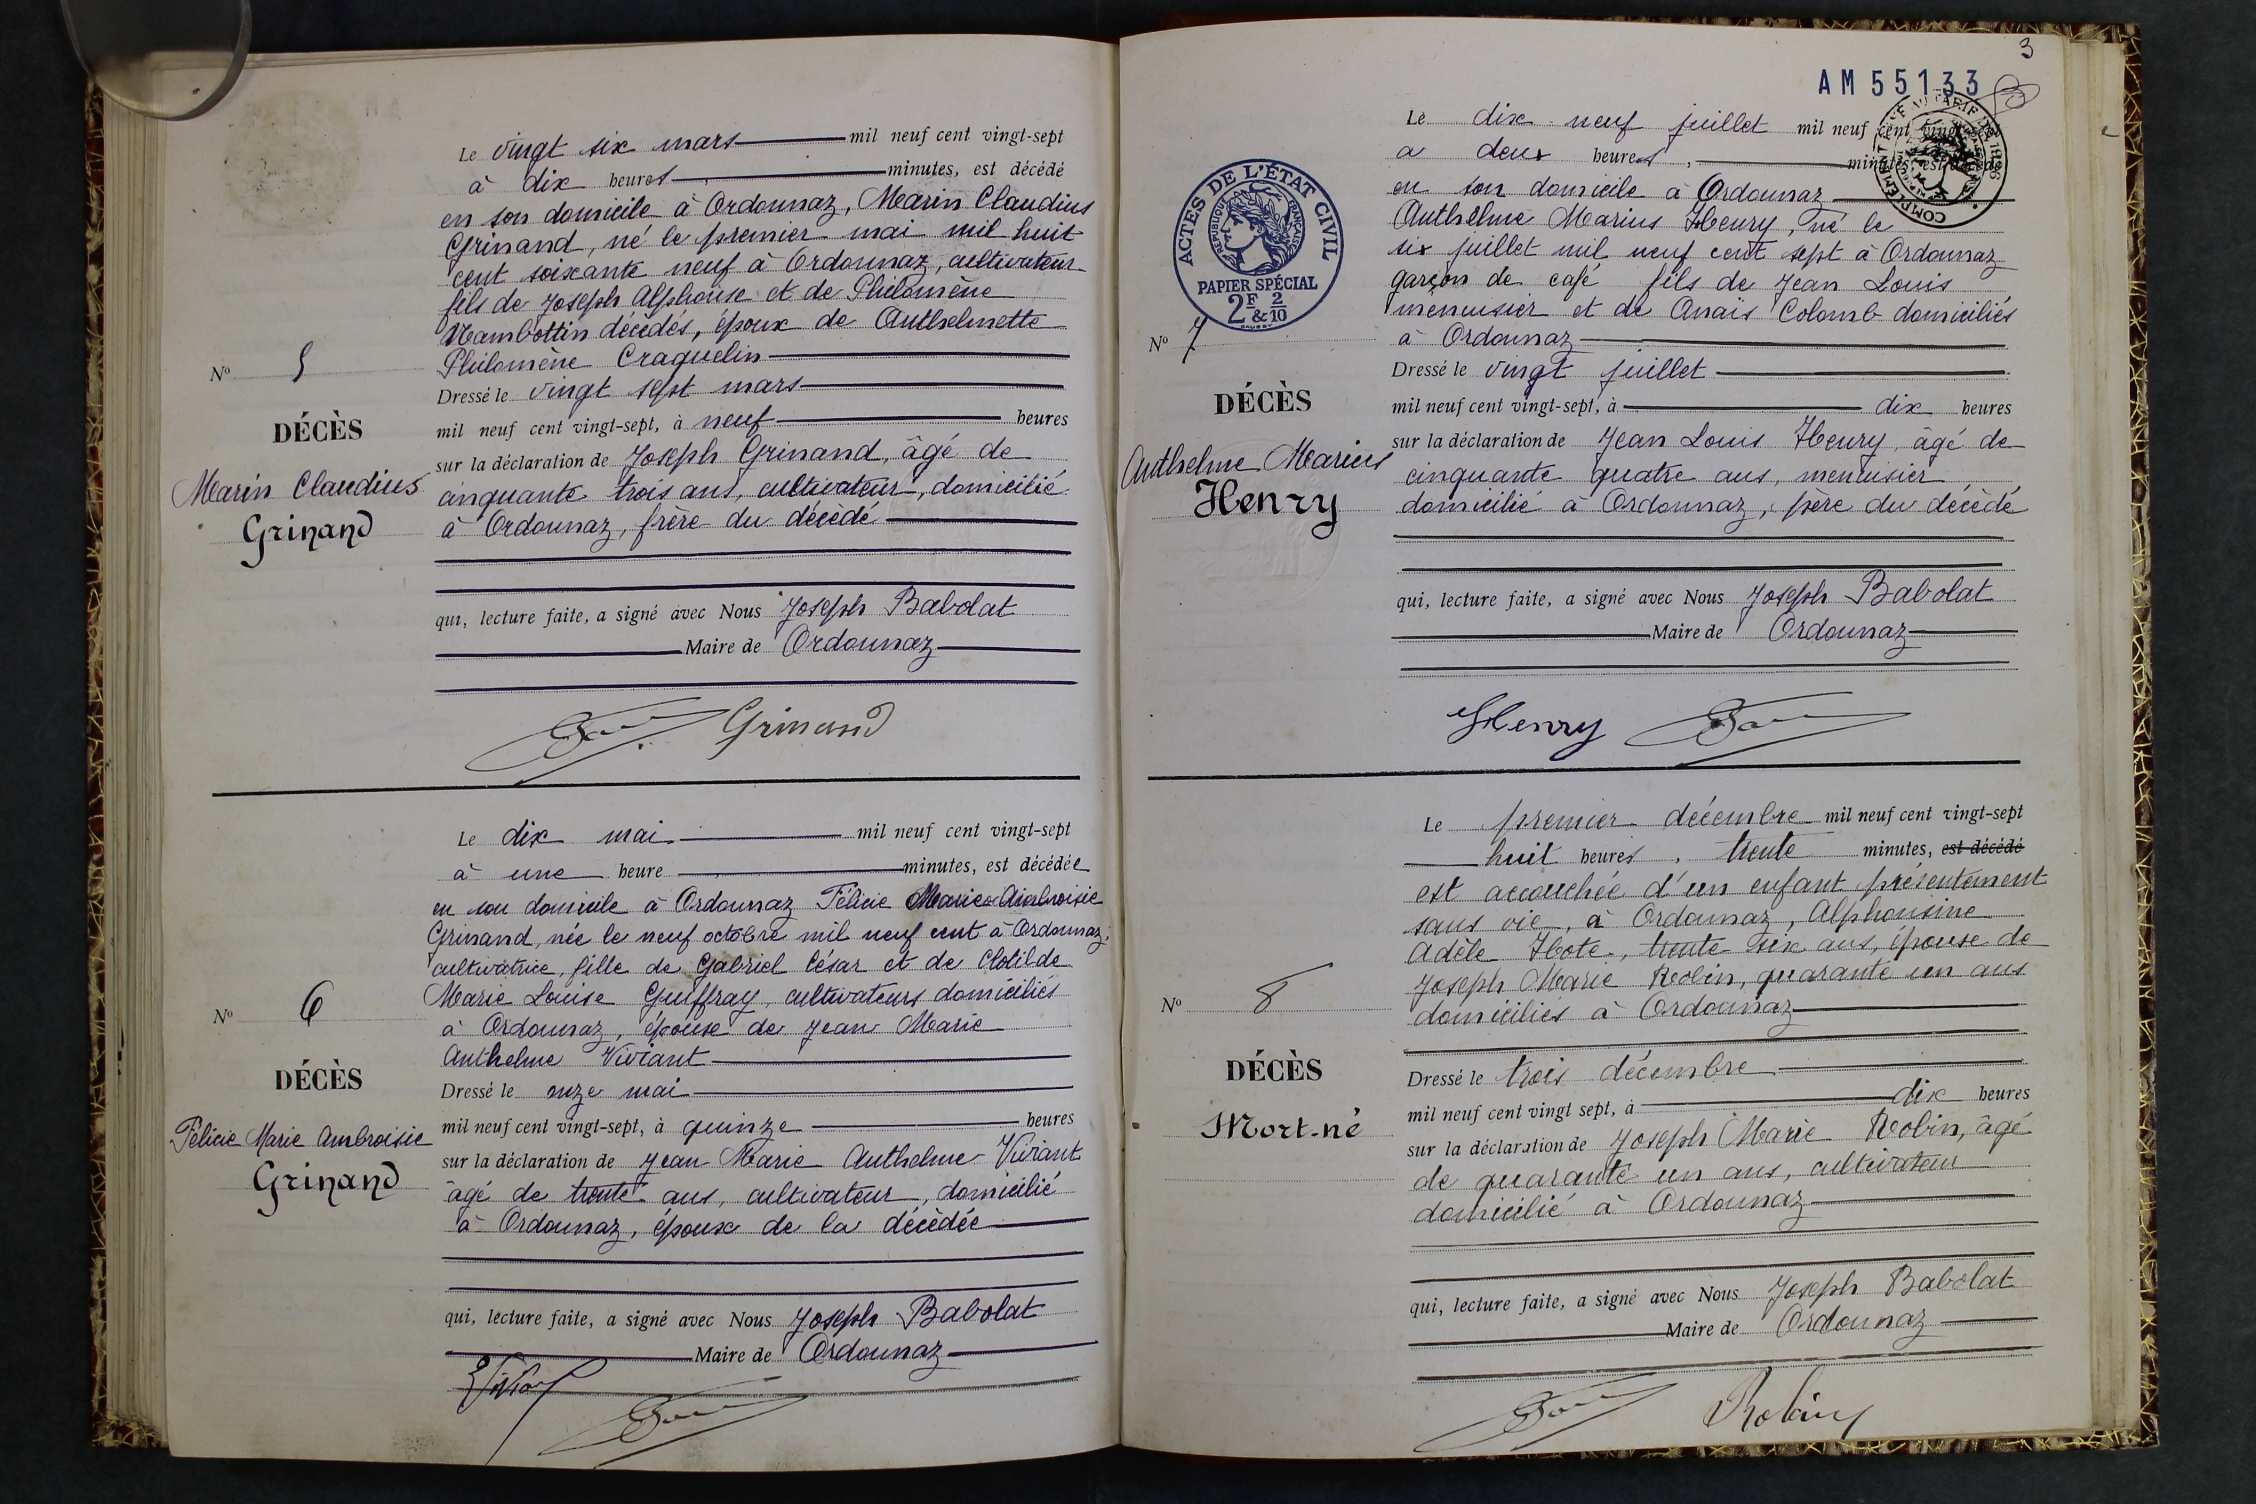 Le vingt six mars mil neuf cent vingt-sept
à dix heures, minutes, est décédé
en son domicile à Ordonnaz, Marin Claudius
Grinand, né le premier mai mil huit
cent soixante neuf à Ordonnaz, cultivateur
fils de Joseph Alphonse et de Philomène
Nambottin décédés, époux de Anthelmette
Philomène Craquelin
Dressé le vingt sept mars
mil neuf cent vingt-sept, à neuf heures
sur la déclaration de Joseph Grinand, âgé de
cinquante trois ans, cultivateur, domicilié
à Ordonnaz, frère du décédé
qui, lecture faite, a signé avec Nous Joseph Babolat
Maire de Ordonnaz
Grinand
No 5
DÉCÈS
Marin Claudius
Grinand
Le dix mai mil neuf cent vingt-sept
à une heure minutes, est décédée
en son domicile à Ordonnaz Félicie Marie Ambroisie
Grinand, née le neuf octobre mil neuf cent à Ordonnaz,
cultivatrice, fille de Gabriel César et de Clotilde
Marie Louise Guiffray, cultivateurs domiciliés
à Ordonnaz, épouse de Jean Marie
Anthelme Viviant
Dressé le onze mai
mil neuf cent vingt-sept, à quinze heures
sur la déclaration de Jean Marie Anthelme Viviant
âgé de trente ans, cultivateur, domicilié
à Ordonnaz, époux de la décédée
qui, lecture faite, a signé avec Nous Joseph Babolat
Maire de Ordonnaz
No 6
DÉCÈS
Félicie Marie Ambroisie
Grinand
3
AM55133
COMPLÉMENT
ACTES DE L'ÉTAT CIVIL
RÉPUBLIQUE FRANÇAISE
PAPIER SPÉCIAL
2F & 2/10
Le dix neuf juillet mil neuf cent vingt-sept
a deux heures, minutes, est décédé
en son domicile à Ordonnaz
Anthelme Marius Henry, né le
six juillet mil neuf cent sept à Ordonnaz
garçon de café fils de Jean Louis
menuisier et de Anaïs Colomb domiciliés
à Ordonnaz
Dressé le vingt juillet
mil neuf cent vingt-sept, à dix heures
sur la déclaration de Jean Louis Henry, âgé de
cinquante quatre ans, menuisier
domicilié à Ordonnaz, père du décédé
qui, lecture faite, a signé avec Nous Joseph Babolat
Maire de Ordonnaz
Henry
No 7
DÉCÈS
Anthelme Marius
Henry
Le premier décembre mil neuf cent vingt-sept
huit heures, trente minutes, est décédé
est accouchée d'un enfant présentement
sans vie, à Ordonnaz, Alphonsine
Adèle Hote, trente six ans, épouse de
Joseph Marie Robin, quarante un ans
domiciliés à Ordonnaz
Dressé le trois décembre
mil neuf cent vingt sept, à dix heures
sur la déclaration de Joseph Marie Robin, âgé
de quarante un ans, cultivateur
domicilié à Ordonnaz
qui, lecture faite, a signé avec Nous Joseph Babolat
Maire de Ordonnaz
Robin
No 8
DÉCÈS
Mort-né